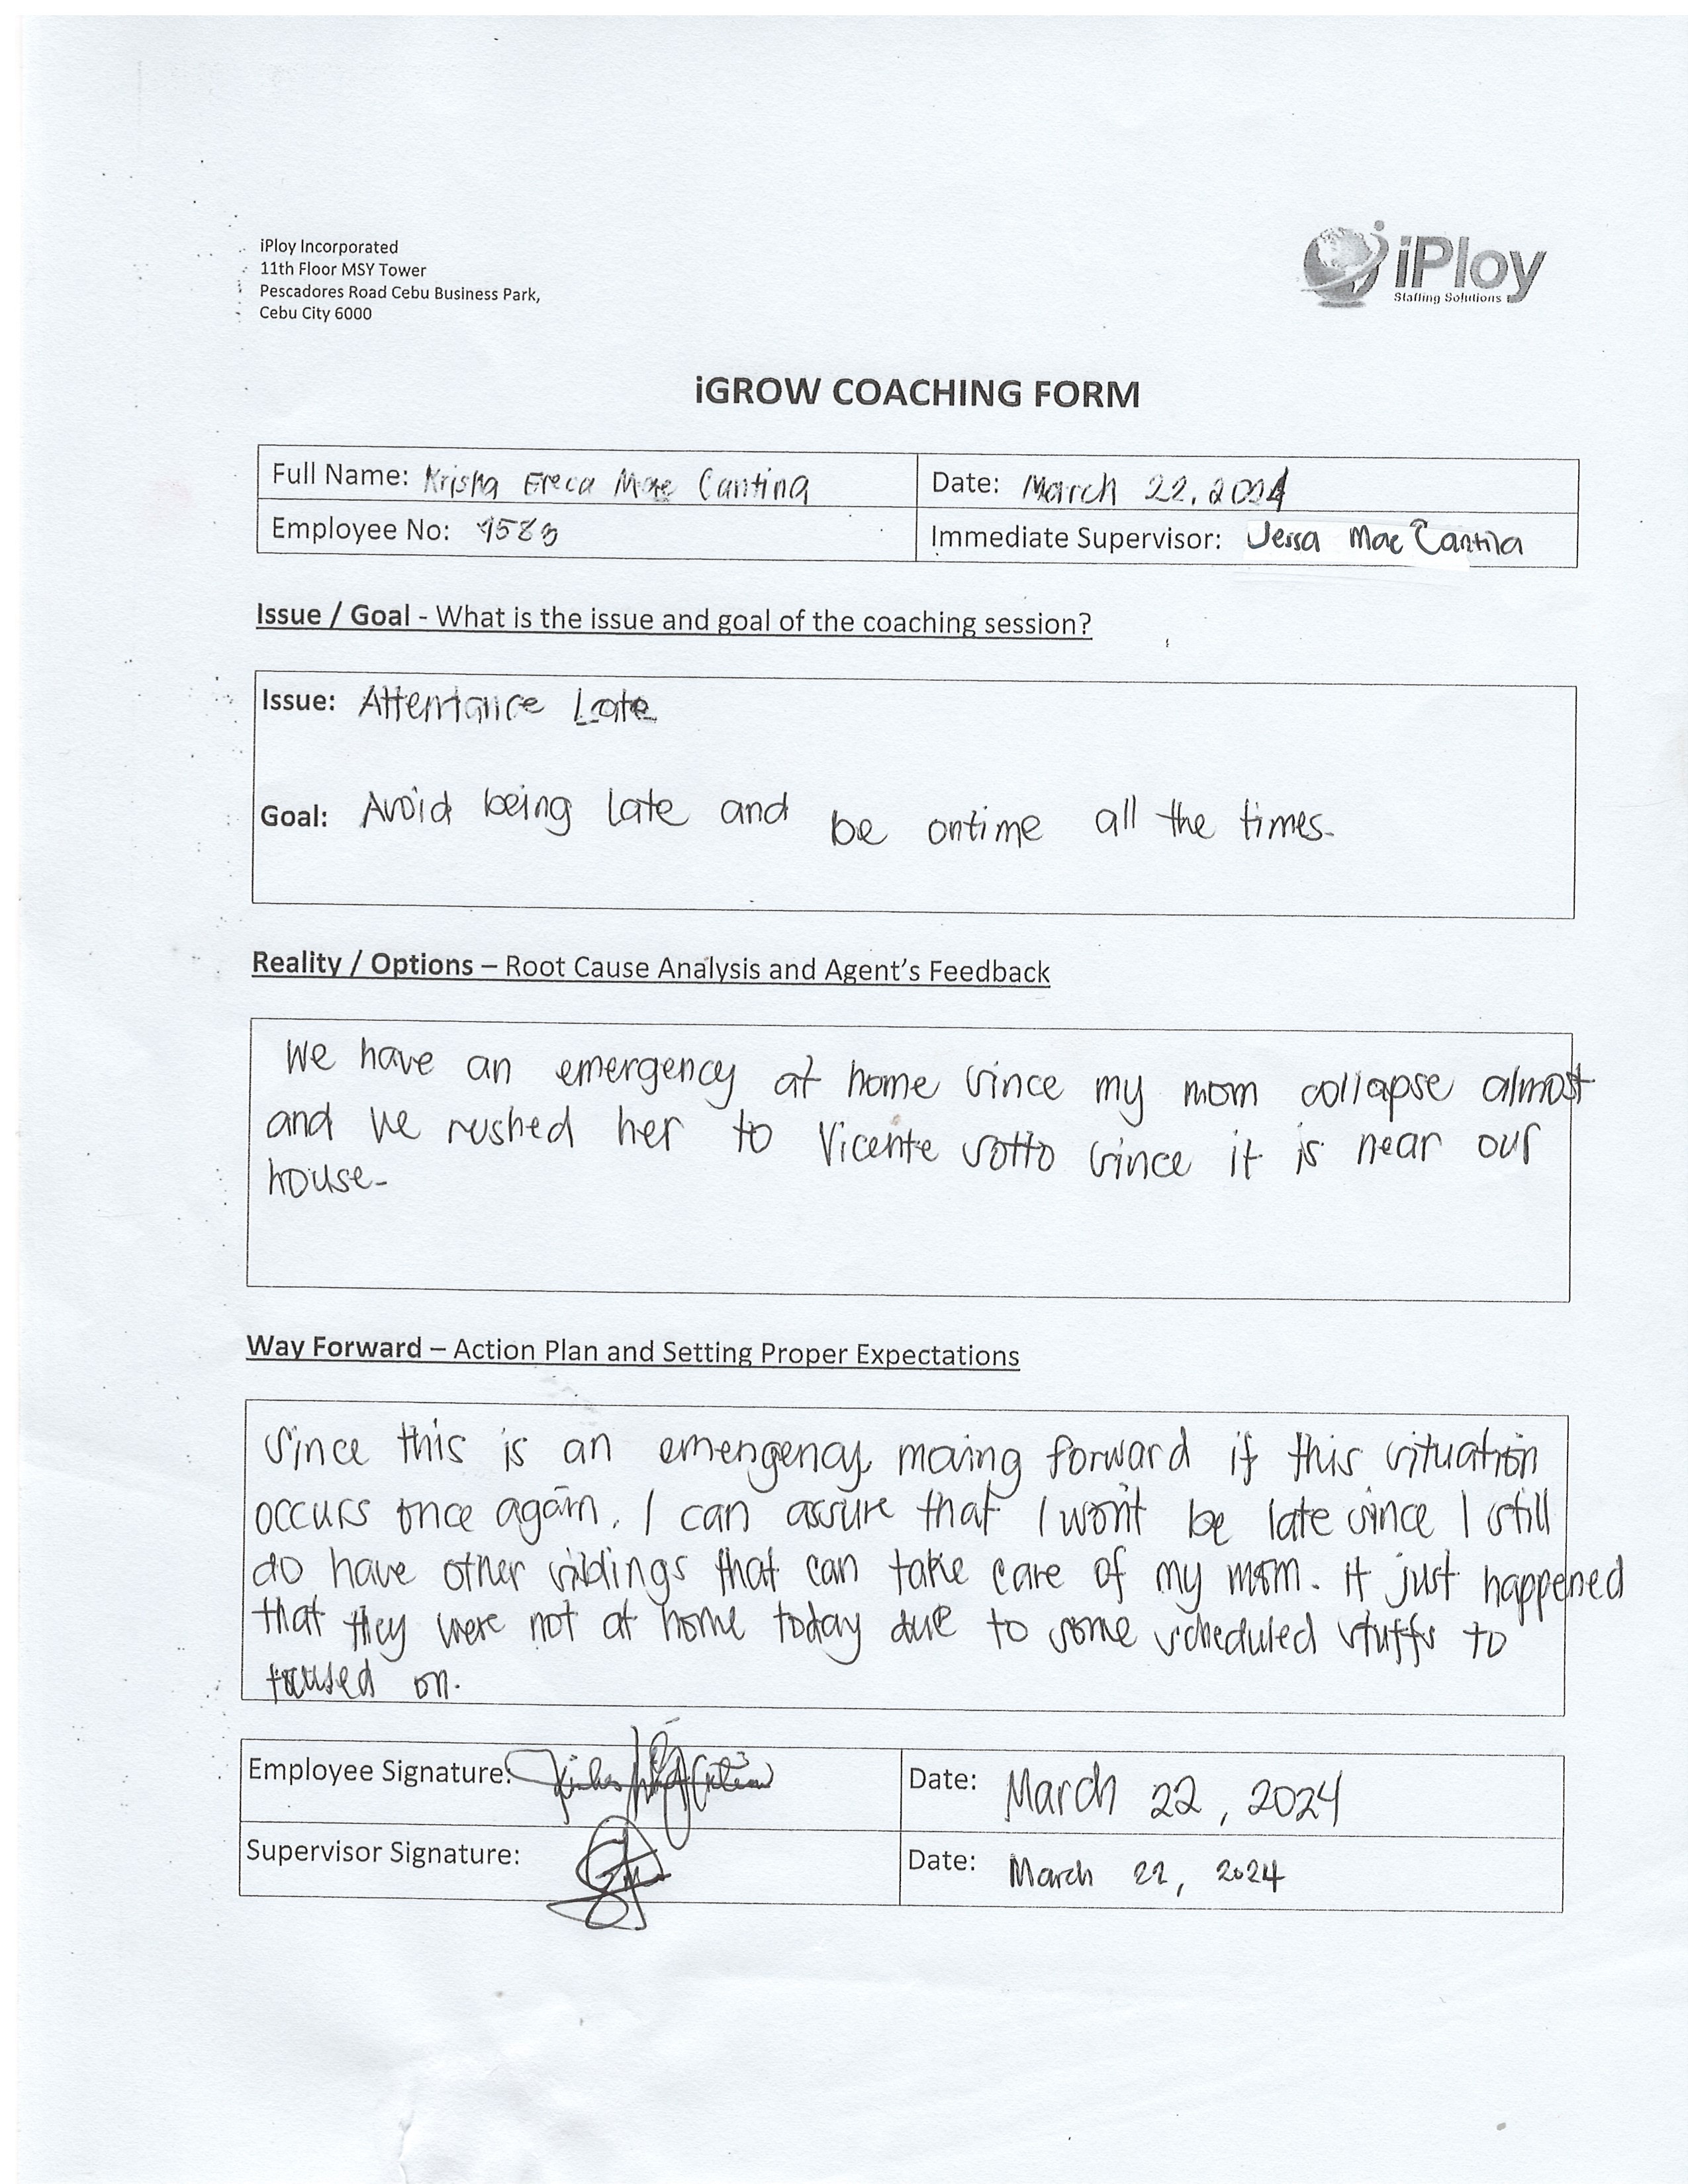 iPloy Incorporated
11th Floor MSY Tower
Pescadores Road Cebu Business Park,
Cebu City 6000
iPloy
Staffing Solutions
iGROW COACHING FORM
Full Name: Krisha Ereca Mae Cantina
Date: March 22, 2024
Employee No:
Immediate Supervisor: Jessa Mae Cantila
Issue / Goal - What is the issue and goal of the coaching session?
Issue: Attentance Late
Goal: Avoid being late and be ontime all the times.
Reality / Options – Root Cause Analysis and Agent's Feedback
We have an emergency at home since my mom collapse almost
and we rushed her to Vicente Sotto since it is near our
house.
Way Forward – Action Plan and Setting Proper Expectations
Since this is an emengency, moving forward if this situation
occurs once again, I can assure that I won't be late since I still
do have other siblings that can take care of my mom. It just happened
that they were not at home today due to some scheduled stuffs to
focused on.
Employee Signature:
Date: March 22, 2024
Supervisor Signature:
Date: March 22, 2024